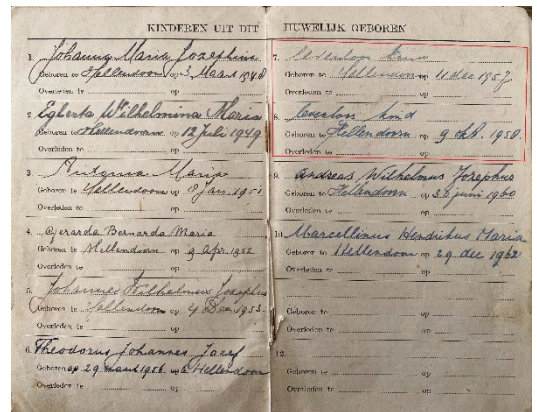 KINDEREN UIT DIT
1. Johanna Maria Josephina
Geboren te Hellendoorn op 3 Maart 1948
Overleden te op
2. Egberta Wilhelmina Maria
Geboren te Hellendoorn op 12 Juli 1949
Overleden te op
3. Antonia Maria
Geboren te Hellendoorn op Jan. 1951
Overleden te op
4. Gerarda Bernarda Maria
Geboren te Hellendoorn op 9 Apr. 1952
Overleden te op
5. Johannes Wilhelmus Josephus
Geboren te Hellendoorn op 4 Dec. 1953
Overleden te op
6. Theodorus Johannes Jozef
Geboren op 29 maart 1956 te Hellendoorn
Overleden te op
HUWELIJK GEBOREN
7. Levenloos
Geboren te Hellendoorn op 11 dec 1957
Overleden te op
8. Levenloos kind
Geboren te Hellendoorn op 9 1958.
Overleden te op
9. Andreas Wilhelmus Josephus
Geboren te Hellendoorn op juni 1960
Overleden te op
10. Marcellinus Hendrikus Maria
Geboren te Hellendoorn op 29 dec 1962
Overleden te op
Geboren te op
Overleden te op
12.
Geboren te op
Overleden te op